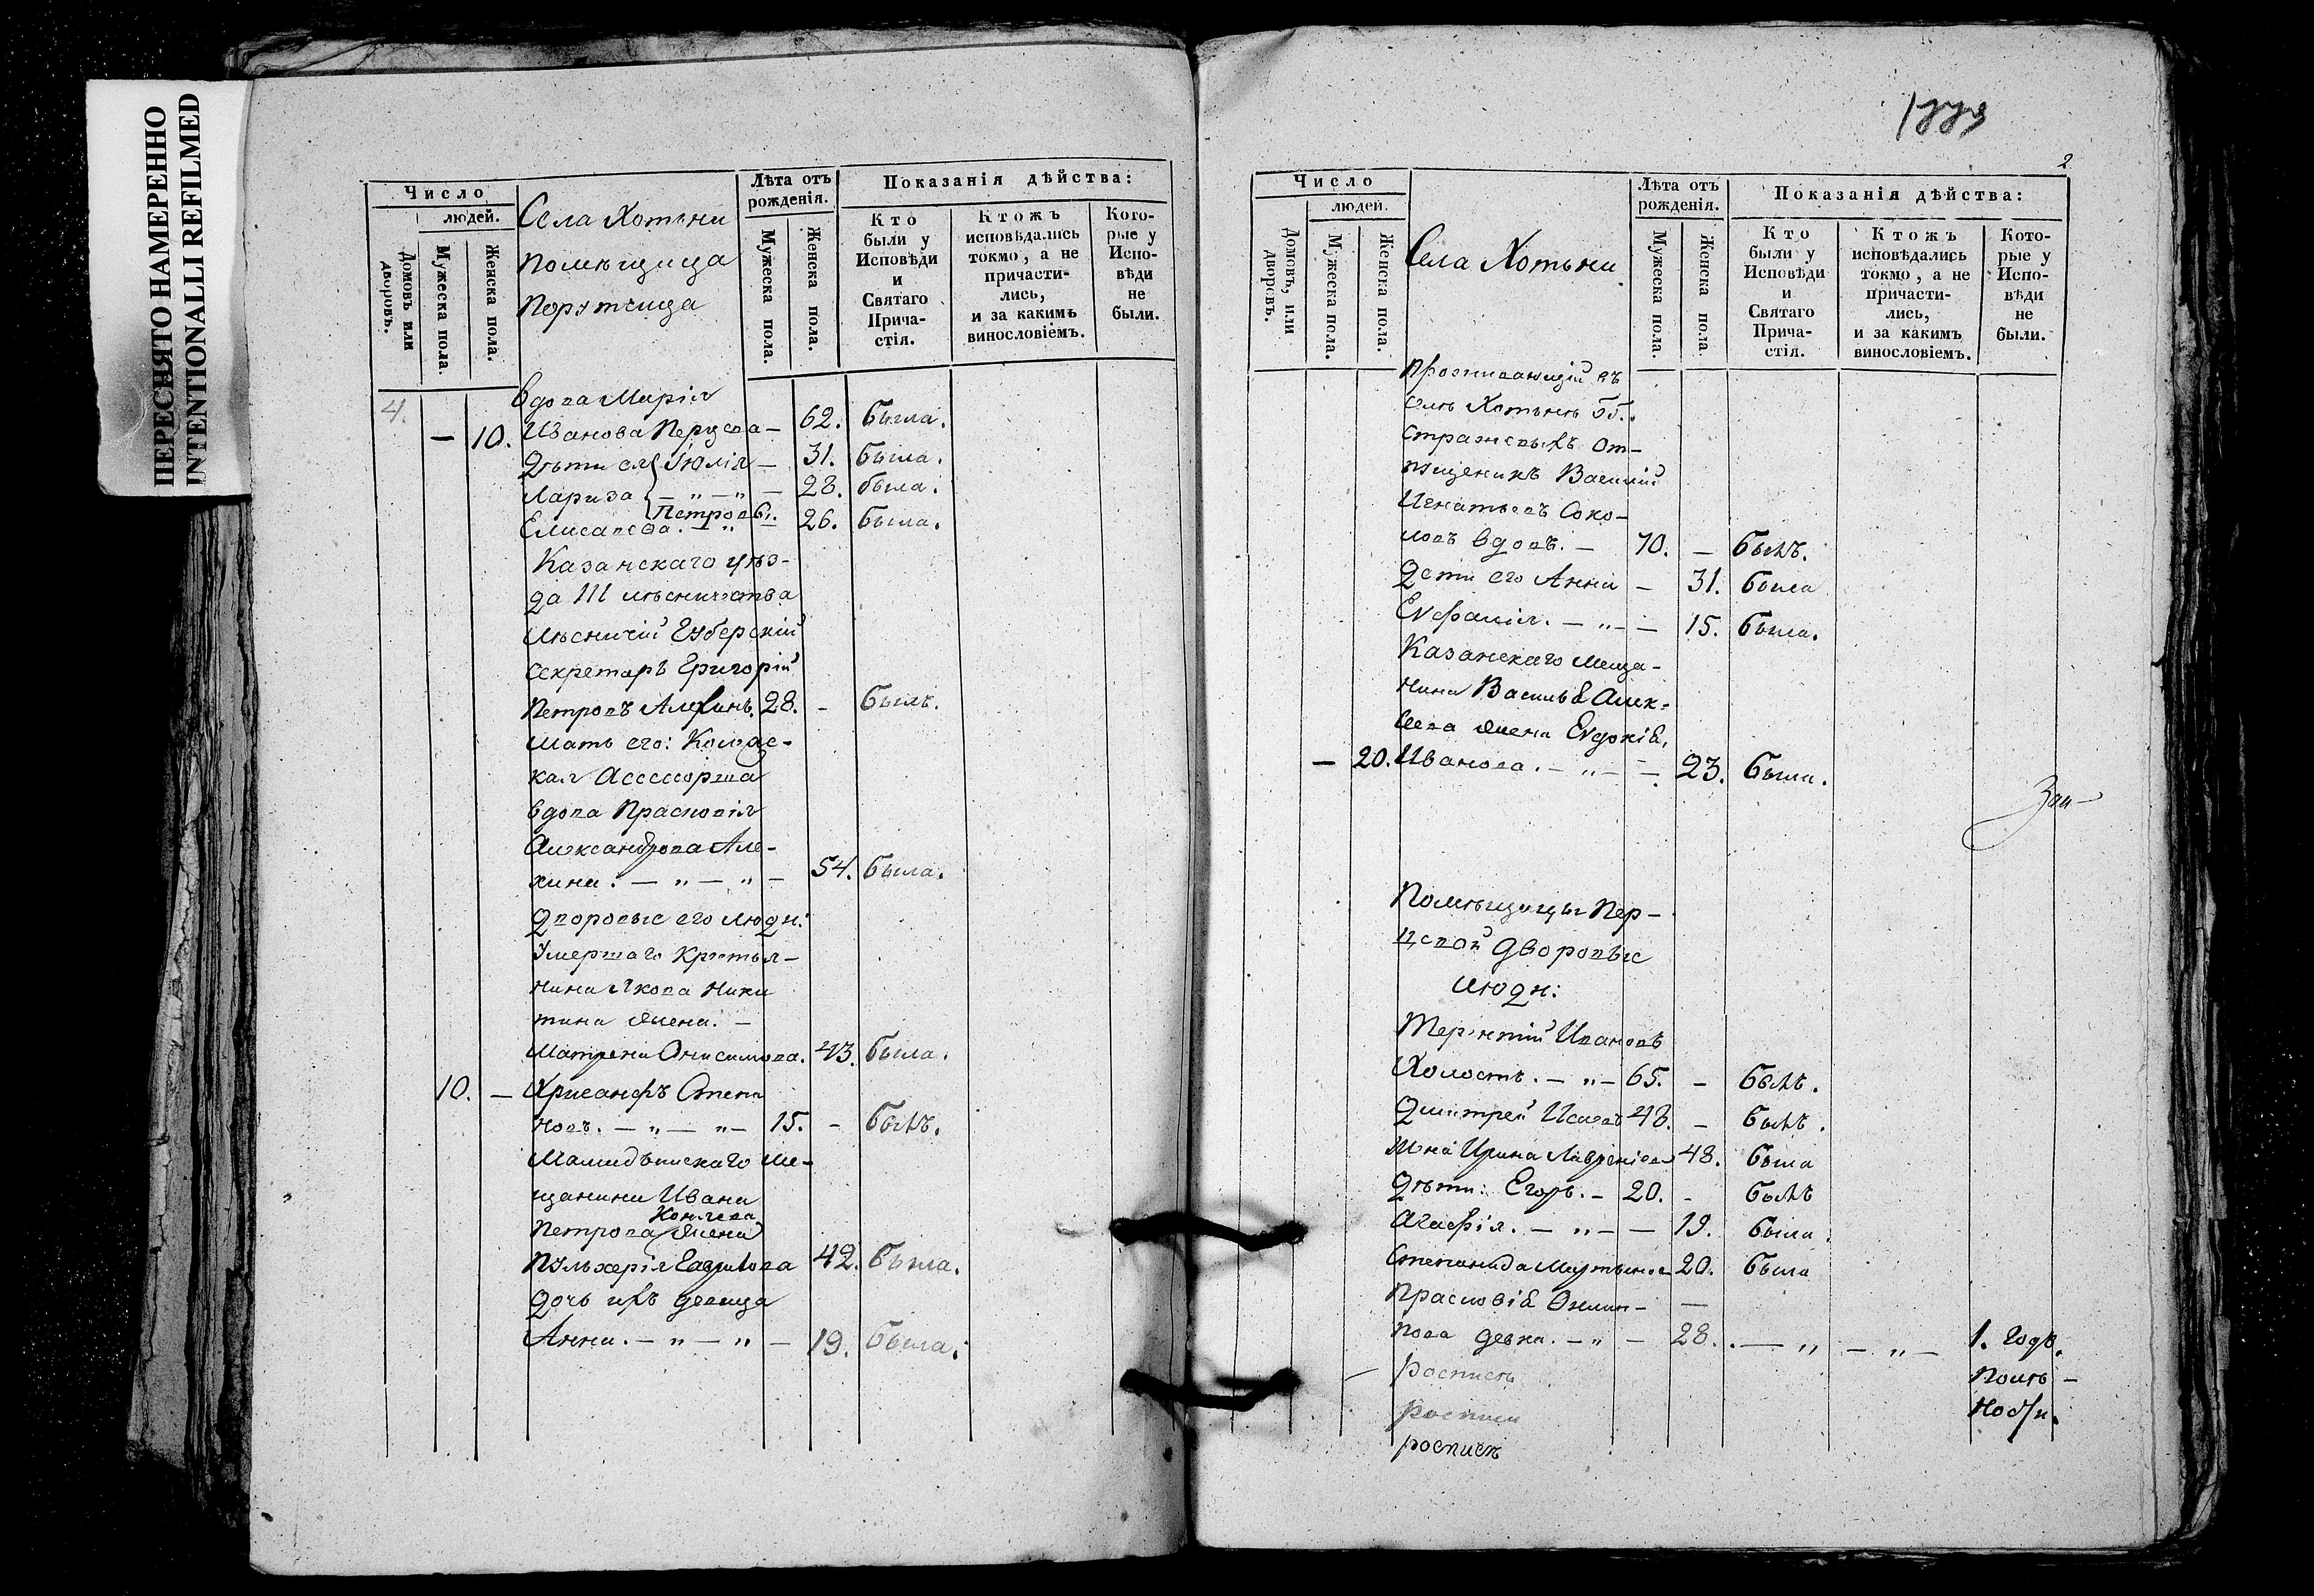 ПЕРЕСНЯТО НАМЕРЕННО
INTENTIONALLI REFILMED
Число
людей.
Домовъ или дворовъ.
Мужеска пола.
Женска пола.
Села Хотьни
помѣщица
порутчица
Лѣта отъ рожденія.
Мужеска пола.
Женска пола.
Показанія дѣйства:
Кто были у Исповѣди и Святаго Прича-стія.
Ктожъ исповѣдались токмо, а не причасти-лись, и за какимъ винословіемъ.
Кото-рые у Испо-вѣди не были.
4.
вдова Марія
— 10. Иванова Перцова — 62. была.
дѣти ея Юлія — 31. была.
Лариза — „ — „ — 28. была.
Петровы
Елисавета. — „ 26. была.
Казанскаго уѣз-
да III лѣсничества
лѣсничій Губерскій
секретарь Григорій
Петровъ Алехинъ. 28. — былъ.
мать его: Колеж-
кая Ассессорша
вдова Прасковія
Александрова Але-
хина. — „ — „ — 54. была.
дворовые его люди:
Умершаго Крестья-
нина Якова Ники
тина жена. —
Матрена Онисимова. 43. была.
10. — Хрисанфъ Степа
новъ. — „ — „ — 15. — былъ.
Мамадышскаго Ме-
щанина Ивана
Петрова жена
Пульхерія Гаврилова 42. была.
дочь ихъ девица
Анна. — „ — „ — 19. была.
2
Число
людей.
Домовъ, или дворовъ.
Мужеска пола.
Женска пола.
Села Хотьни
Лѣта отъ рожденія.
Мужеска пола.
Женска пола
Показанія дѣйства:
Кто были у Исповѣди и Святаго Прича-стія.
Ктожъ исповѣдались токмо, а не причасти-лись, и за какимъ винословіемъ.
Кото-рые у Испо-вѣди не были.
Проживающій въ
селѣ Хотьнѣ Гг.
Стражевыхъ От-
пущеникъ Василій
Игнатьевъ Соко-
ловъ вдовъ. — 70. — былъ.
дети его Анна — 31. была
Евфалія. — „ — — 15. была.
Казанскаго меща-
нина Василья Алек-
сеева жена Евдокія
— 20. Иванова. — „ — — 23. была.
Помѣщицы Пер-
цовой дворовые
люди:
Терентій Ивановъ
Холостъ. — „ — 65. — былъ.
Дмитрей Исаевъ 48. — былъ.
жена Ирина Лаврентіева 48. была
дѣти: Егоръ. — 20. — былъ
Агафія. — „ — — 19. была.
Степанида Мартынова 20. была
Прасковія Филип-
пова девка. — „ — 28. — „ — „ — 1. годъ.
роспись
роспись
роспись